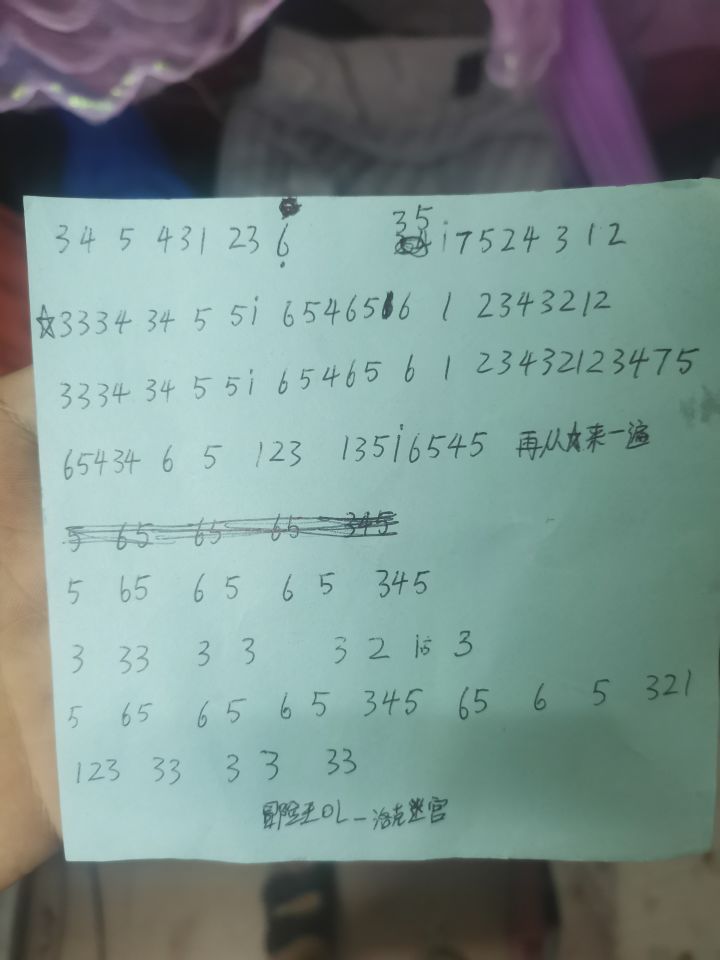 34 5 431 23 6̣ 35 i7524 3 12
☆3334 34 5 5i 6546516 1 2343212
3334 34 5 5i 65465 6 1 23432123475
65434 6 5 123 135i6545 再从☆来一遍
5 65 65 65 345
5 65 6 5 6 5 345
3 33 3 3 3 2 3
5 65 6 5 6 5 345 65 6 5 321
123 33 3 3 33
冒险王OL—洛克迷宫